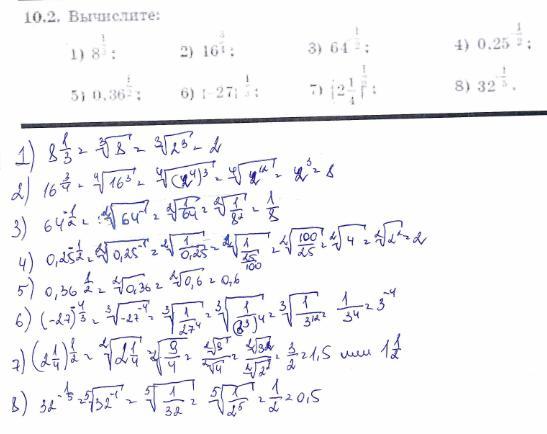 10.2. Вычислите:
1) 8^{1/3}; 2) 16^{3/4}; 3) 64^{-1/2}; 4) 0,25^{-1/2};
5) 0,36^{1/2}; 6) (-27); 7) (2 1/4)^{1/2}; 8) 32^{-1/5}.
1) 8^{1/3} = ∛8 = ∛(2^3) = 2
2) 16^{3/4} = ⁴√(16^3) = ⁴√((2^4)^3) = ⁴√(2^{12}) = 2^3 = 8
3) 64^{-1/2} = ²√(64^{-1}) = ²√(1/64) = ²√(1/8^2) = 1/8
4) 0,25^{-1/2} = ²√(0,25^{-1}) = ²√(1/0,25) = ²√(1/(25/100)) = ²√(100/25) = ²√4 = ²√(2^2) = 2
5) 0,36^{1/2} = ²√0,36 = ²√0,6 = 0,6
6) (-27)^{-4/3} = ∛(-27^{-4}) = ∛(1/27^4) = ∛(1/(3^3)^4) = ∛(1/3^{12}) = 1/3^4 = 3^{-4}
7) (2 1/4)^{1/2} = ²√(2 1/4) = ²√(9/4) = ²√9/²√4 = ²√(3^2)/²√(2^2) = 3/2 = 1,5 или 1 1/2
8) 32^{-1/5} = ⁵√(32^{-1}) = ⁵√(1/32) = ⁵√(1/2^5) = 1/2 = 0,5